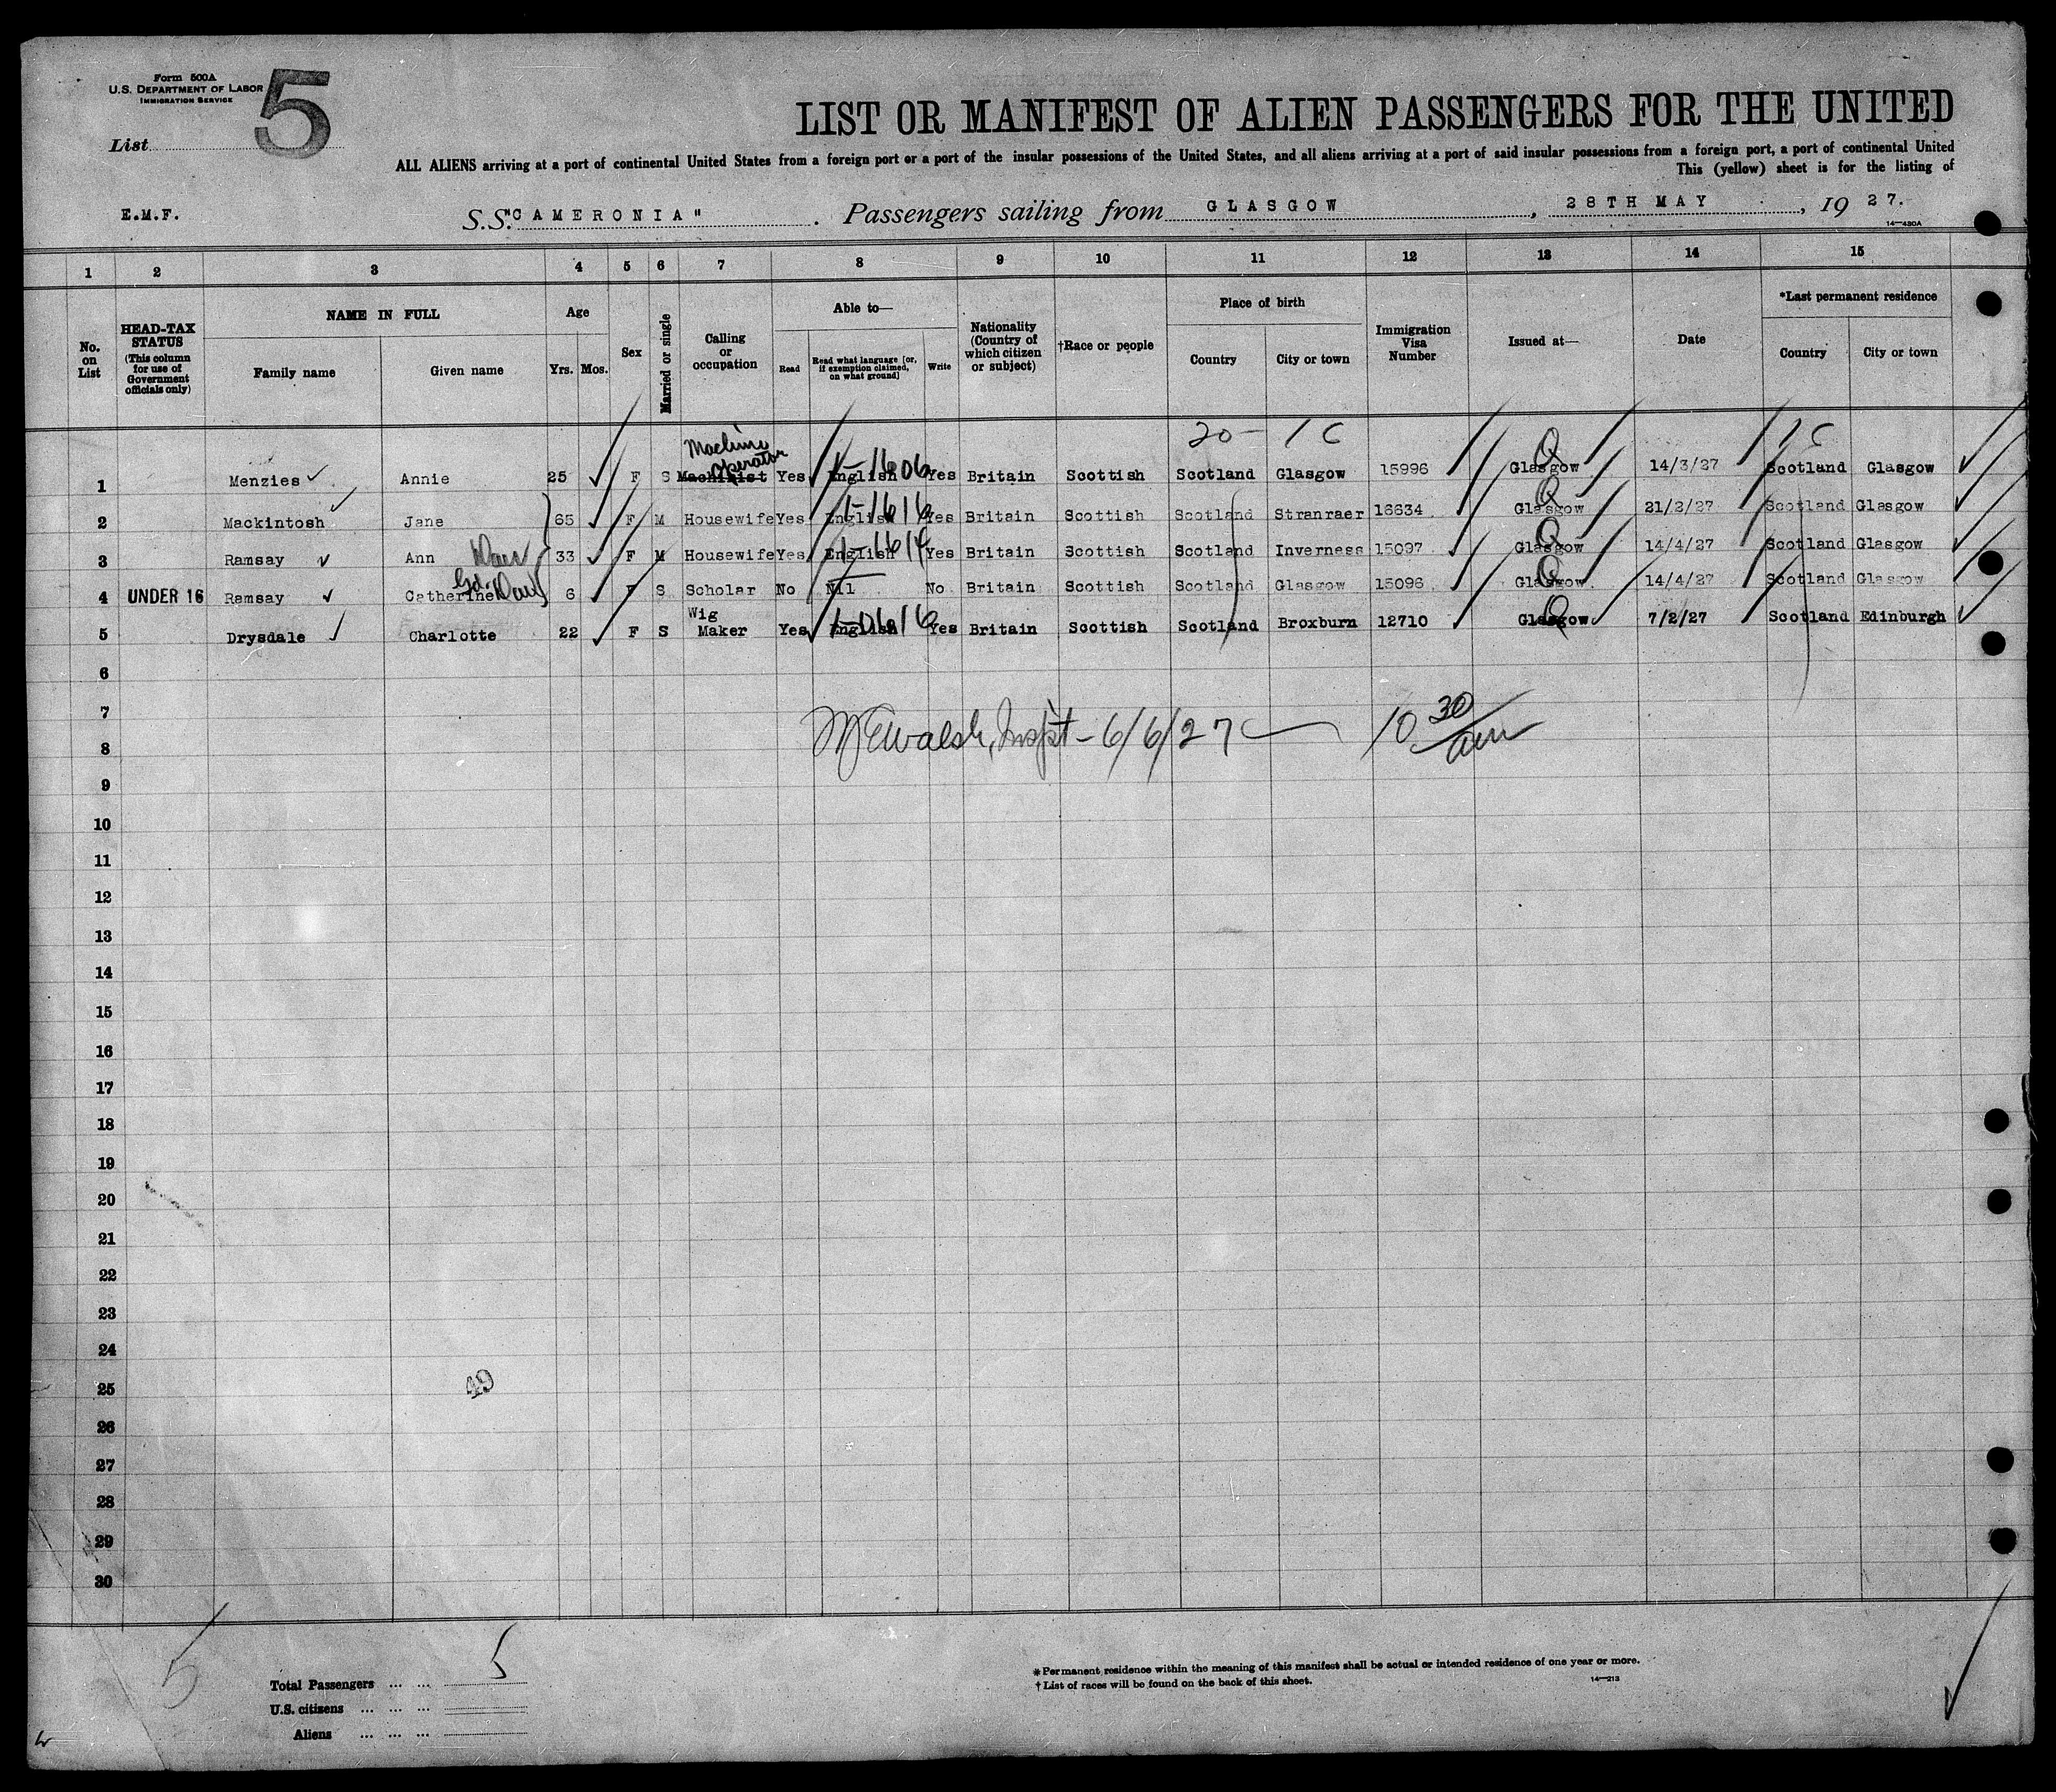 Form 500A
U.S. DEPARTMENT OF LABOR
IMMIGRATION SERVICE
List 5
LIST OR MANIFEST OF ALIEN PASSENGERS FOR THE UNITED
ALL ALIENS arriving at a port of continental United States from a foreign port or a port of the insular possessions of the United States, and all aliens arriving at a port of said insular possessions from a foreign port, a port of continental United
This (yellow) sheet is for the listing of
E.M.F. S.S. "CAMERONIA". Passengers sailing from GLASGOW, 28TH MAY, 19 27.
14—480A
1 2 3 4 5 6 7 8 9 10 11 12 13 14 15
No. on List
HEAD-TAX STATUS (This column for use of Government officials only)
NAME IN FULL Family name Given name
Age Yrs. Mos.
Sex
Married or single
Calling or occupation
Able to— Read Read what language [or, if exemption claimed, on what ground] Write
Nationality (Country of which citizen or subject)
†Race or people
Place of birth Country City or town
Immigration Visa Number
Issued at—
Date
*Last permanent residence Country City or town
20- 16 16
Machine operator
1 Menzies Annie 25 F S Machinist Yes English 1-1606 Yes Britain Scottish Scotland Glasgow 15996 Glasgow 14/3/27 Scotland Glasgow
2 Mackintosh Jane 65 F M Housewife Yes English 1-1616 Yes Britain Scottish Scotland Stranraer 16634 Glasgow 21/2/27 Scotland Glasgow
3 Ramsay Ann Dau 33 F M Housewife Yes English Yes Britain Scottish Scotland Inverness 15097 Glasgow 14/4/27 Scotland Glasgow
4 UNDER 16 Ramsay Catherine Gd. Dau 6 F S Scholar No Nil No Britain Scottish Scotland Glasgow 15096 Glasgow 14/4/27 Scotland Glasgow
5 Drysdale Charlotte 22 F S Wig Maker Yes English Yes Britain Scottish Scotland Broxburn 12710 Glasgow 7/2/27 Scotland Edinburgh
6
7
8 Walsh, Inspt - 6/6/27 10 30/am
9
10
11
12
13
14
15
16
17
18
19
20
21
22
23
24
25 49
26
27
28
29
30
5
Total Passengers ... ... 5
U.S. citizens ... ... ...
Aliens ... ... ...
*Permanent residence within the meaning of this manifest shall be actual or intended residence of one year or more.
†List of races will be found on the back of this sheet.
14—213